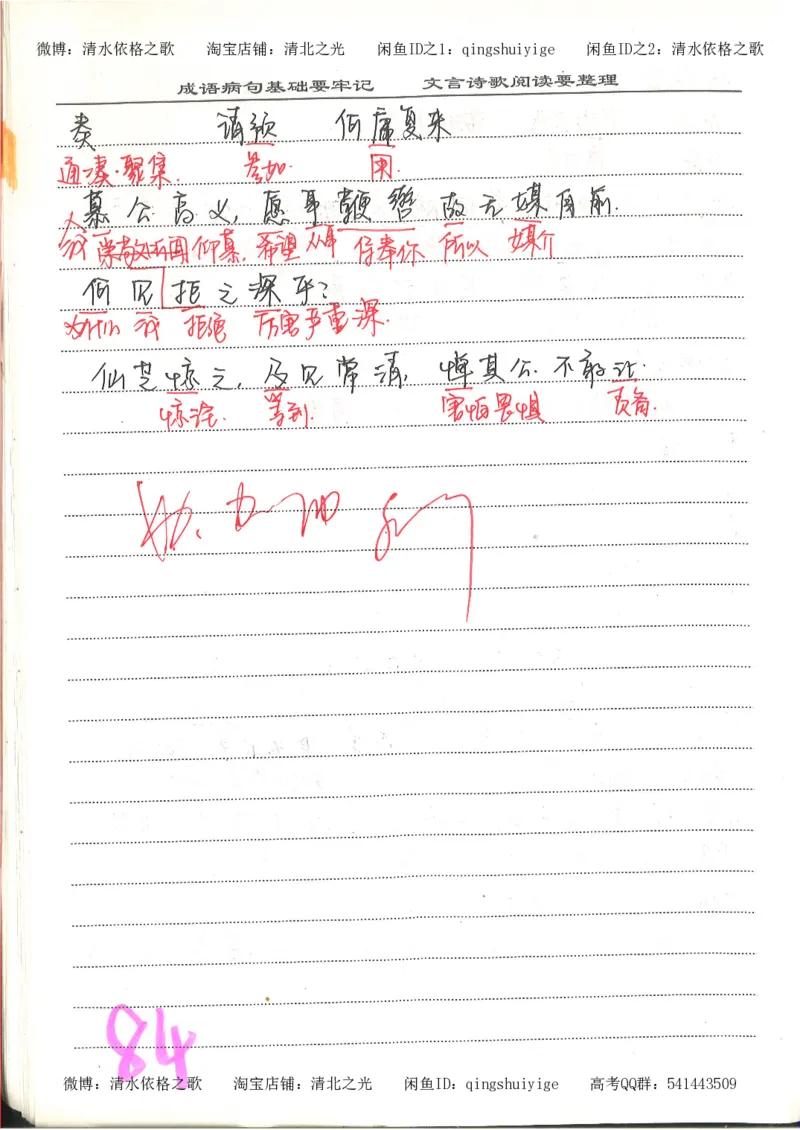 微博：清水依格之歌 淘宝店铺：清北之光 闲鱼ID之1：qingshuiyige 闲鱼ID之2：清水依格之歌
成语病句基础要牢记 文言诗歌阅读要整理
奏 请预 何庸复来
通凑.聚集. 参加. 用.
慕公高义，愿事鞭辔 故无媒自前.
人我 崇敬 仰慕，希望 从事 侍奉你 所以 媒介
何见拒之深乎？
为什么 我 拒绝 厉害严重深.
仙芝惊之，及见常清，惮其公不敢让.
惊诧. 等到. 害怕畏惧 责备.
84
微博：清水依格之歌 淘宝店铺：清北之光 闲鱼ID：qingshuiyige 高考QQ群：541443509